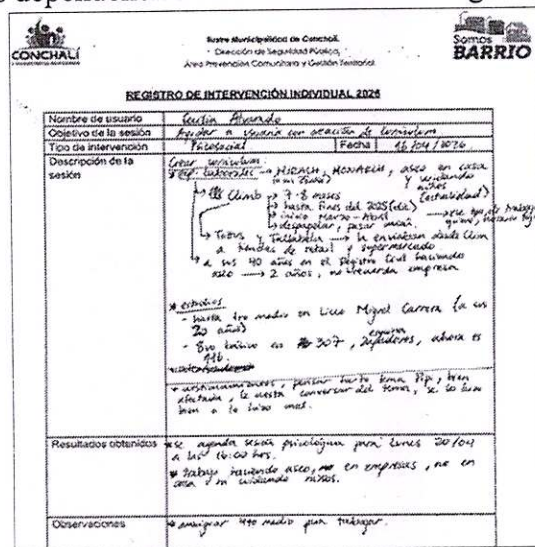 CONCHALÍ
Ilustre Municipalidad de Conchalí.
Dirección de Seguridad Pública,
Área Prevención Comunitaria y Gestión Territorial.
Somos
BARRIO
REGISTRO DE INTERVENCIÓN INDIVIDUAL 2026
Nombre de usuario Alvarado
Objetivo de la sesión Ayudar a usuaria con creación de curriculum
Tipo de intervención Psicosocial Fecha 16/04/2026
Descripción de la sesión
Crear curriculum:
laborales → aseo en casa
y cuidando niños
(actualidad)
→ Climb → 7-8 meses
→ hasta fines del 2025 (dic)
→ inicio Marzo-Abril
→ despapelar, pasar
→ Tottus y Falabella → la enviaban desde Clim
a tiendas de retail y supermercado
→ a sus 40 años en el Registro Civil haciendo
aseo → 2 años, no recuerda empresa
* estudios
- hasta 1ro medio en Liceo Miguel Carrera (a sus
20 años)
- 8vo básico en 307, ahora es
116.
pensar harto tema bien
afectada, le cuesta conversar del tema, se lo
bien a lo mal.
Resultados obtenidos
* se agenda sesión psicológica para lunes 20/04
a las 16:00 hrs.
* trabajo haciendo aseo, en empresas, no en
casa ni cuidando niños.
Observaciones
4to medio para trabajar.